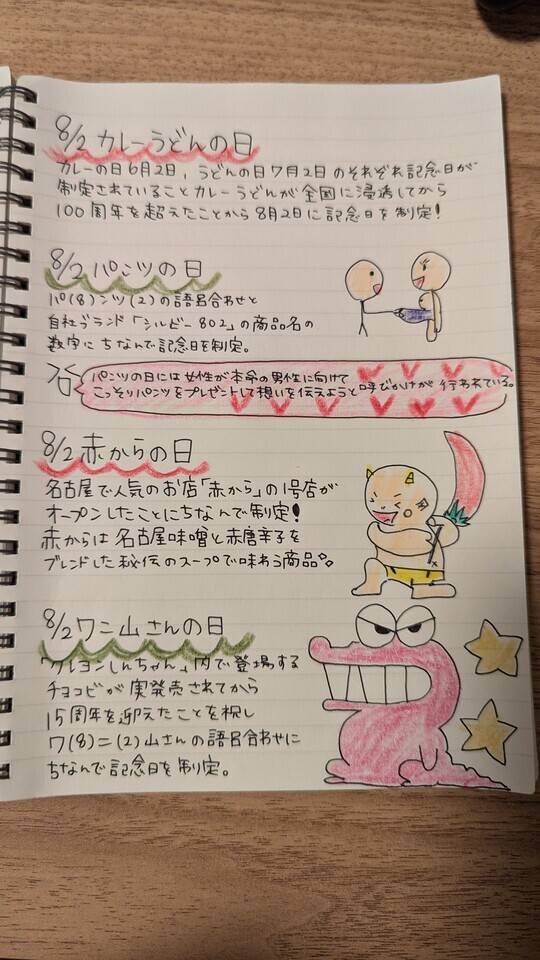 8/2 カレーうどんの日
カレーの日6月2日，うどんの日7月2日のそれぞれ記念日が
制定されていることカレーうどんが全国に浸透してから
100周年を超えたことから8月2日に記念日を制定!
8/2 パンツの日
パ(8)ンツ(2)の語呂合わせと
自社ブランド「シルビー802」の商品名の
数字にちなんで記念日を制定。
パンツの日には女性が本命の男性に向けて
こっそりパンツをプレゼントして想いを伝えようと呼びかけが行われている。
8/2 赤からの日
名古屋で人気のお店「赤から」の1号店が
オープンしたことにちなんで制定!
赤からは名古屋味噌と赤唐辛子を
ブレンドした秘伝のスープで味わう商品。
8/2 ワニ山さんの日
「クレヨンしんちゃん」内で登場する
チョコビが実発売されてから
15周年を迎えたことを祝し
ワ(8)ニ(2)山さんの語呂合わせに
ちなんで記念日を制定。